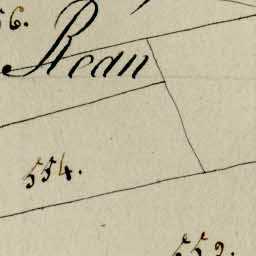 56.
Rean
554.
552.